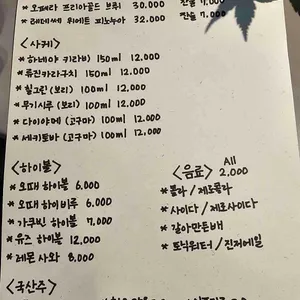 * 오페라 프리아골드 브뤼 30.000 잔술 7.000
* 레미쎄 위에트 피노누아 32.000 잔술 7.000
<사케>
* 하네야 키라비 150ml 12.000
* 퓨진카라구치 150ml 12.000
* 힐그린 (보리) 100ml 12.000
* 무기시루 (보리) 100ml 12.000
* 다이야메 (고구마) 100ml 12.000
* 세키토바 (고구마) 100ml 12.000
<하이볼>
* 오때 하이볼 6.000
* 오때 하이비루 6.000
* 가쿠빈 하이볼 7.000
* 유즈 하이볼 12.000
* 레몬 사와 8.000
<음료> All 2.000
* 콜라 / 제로콜라
* 사이다 / 제로사이다
* 갈아만든배
* 토닉워터 / 진저에일
<국산주>